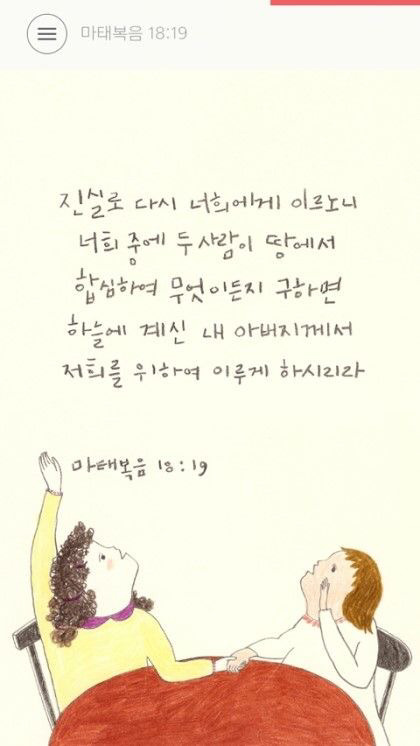 마태복음 18:19
진실로 다시 너희에게 이르노니
너희 중에 두사람이 땅에서
합심하여 무엇이든지 구하면
하늘에 계신 내 아버지께서
저희를 위하여 이루게 하시리라
마태복음 18:19